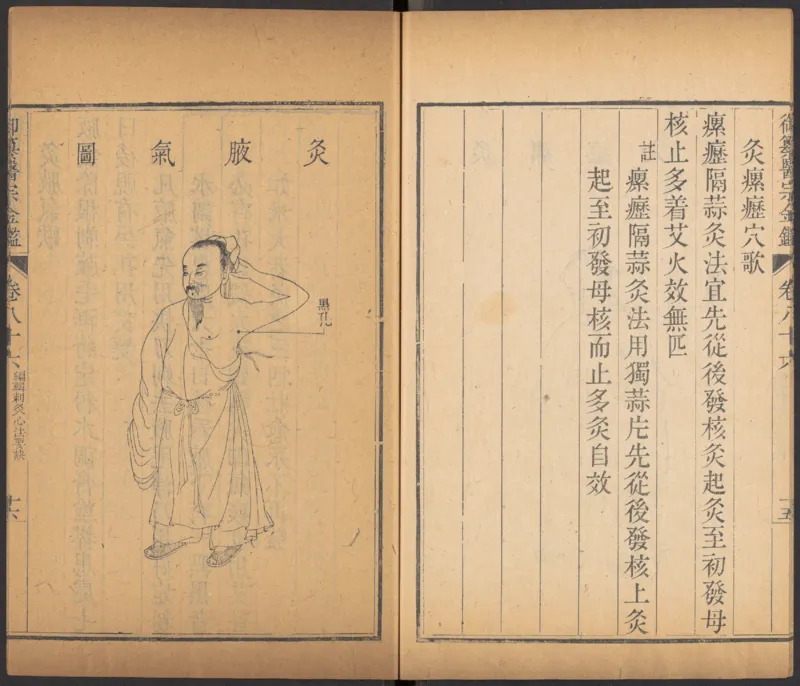 灸瘰癧穴歌
瘰癧隔蒜灸法宜先從後發核灸起灸至初發母
核止多着艾火效無匹
註
瘰癧隔蒜灸法用獨蒜片先從後發核上灸
起至初發母核而止多灸自效
灸
腋
氣
圖
黑孔
御纂醫宗金鑑
卷八十六
編輯刺灸心法要訣